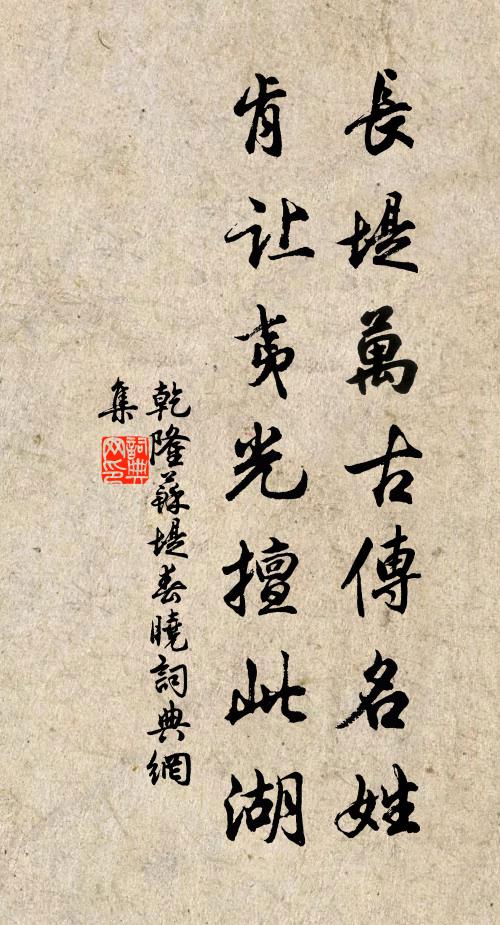 長堤萬古傳名姓
肯让夷光擅此湖
乾隆蘇堤春曉詞典網
集
詞典
网印